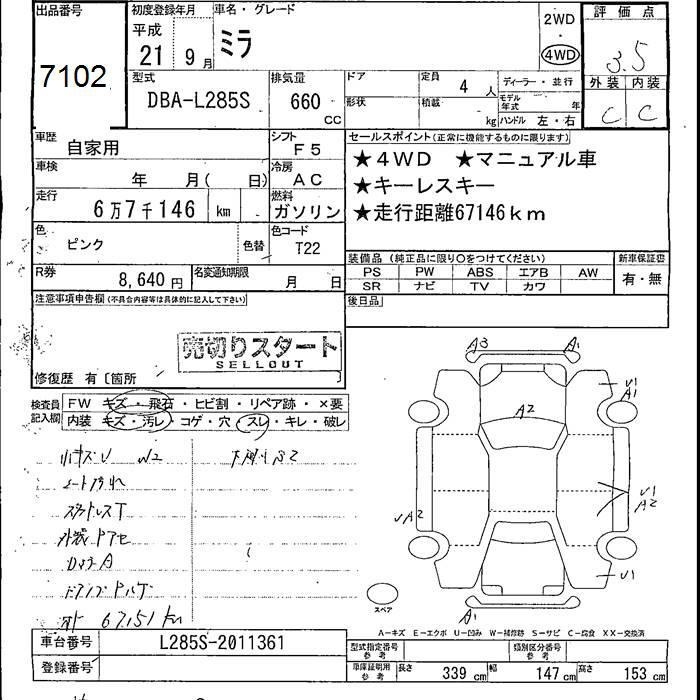 出品番号 初度登録年月 車名・グレード 2WD 評価点
平成 ミラ 4WD 3.5
21 9月
7102 型式 排気量 ドア 定員 4人 ディーラー・並行 外装 内装
DBA-L285S 660 cc 形状 積載 kg モデル年式 年 C C
ハンドル 左・右
車歴 自家用 シフト F5 セールスポイント(正常に機能するものに限ります)
★4WD ★マニュアル車
車検 年 月( 日) 冷房 AC ★キーレスキー
走行 6万7千146 km 燃料 ガソリン ★走行距離67146km
色 ピンク 色替 色コード T22
装備品(純正品に限り〇をつけてください) 新車保証書
R券 8,640円 名変通知期限 月 日 PS PW ABS エアB AW 有・無
SR ナビ TV カワ
注意事項申告欄(不具合内容等は具体的に記入して下さい) 後日品
売切りスタート
SELLOUT
修復歴 有〔箇所 〕
検査員記入欄 FW キズ・飛石・ヒビ割・リペア跡・×要
内装 キズ・汚レ・コゲ・穴・スレ・キレ・破レ
A3 A1
A2
V1
A1
V1
A2
A2
V1
A1
スペア
シート汚れ
スタッドレスT
外装
67151km
A-キズ E-エクボ U-凹み W-補修跡 S-サビ C-腐食 XX-交換済
車台番号 L285S-2011361 型式指定番号 参考 類別区分番号 参考
登録番号 車庫証明用 参考 長さ 339cm 幅 147cm 高さ 153cm